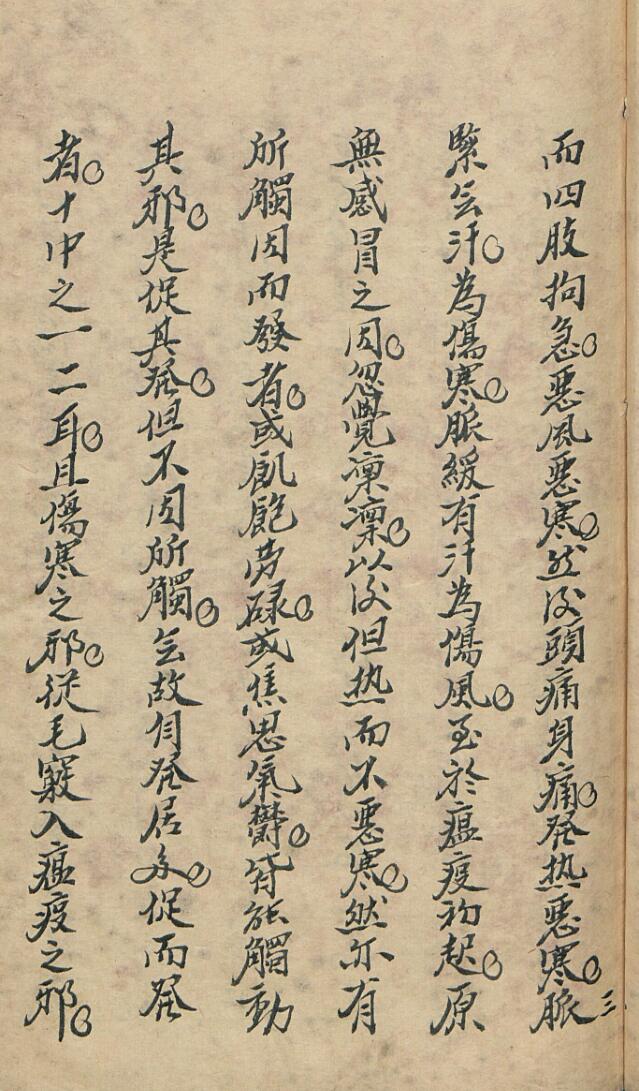 而四肢拘急。惡風惡寒。然后頭痛身痛。発热惡寒。脈
緊无汗。為傷寒。脈緩有汗為傷風。至於瘟疫初起。原
無感冒之因。忽覺凜凜。以后但热而不惡寒。然亦有
所觸因而發者。或飢飽劳碌。或焦思氣鬱。皆能觸動
其邪。是促其発。但不因所觸。无故自発居多。促而発
者。十中之一二耳。且傷寒之邪。從毛竅入瘟疫之邪。
三